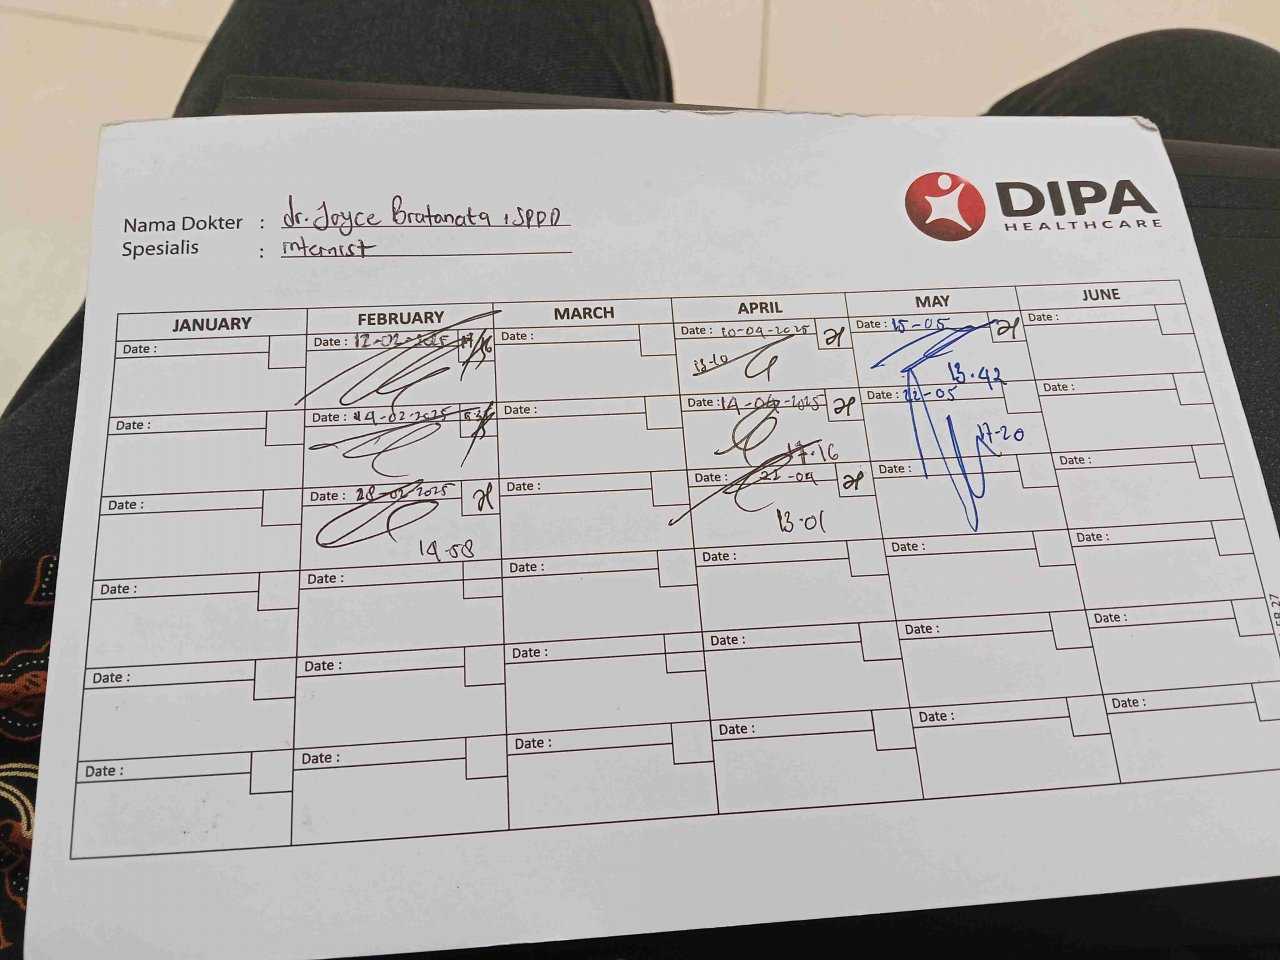 DIPA
HEALTHCARE
Nama Dokter : dr. Joyce Bratanata, SPPD
Spesialis : internist
JANUARY FEBRUARY MARCH APRIL MAY JUNE
Date : Date : 12-02-2025 Date : Date : 10-04-2025 Date : 15-05 Date :
13-10 13.42
Date : Date : 14-02-2025 Date : Date : 14-04-2025 Date : 22-05 Date :
17.16 17-20
Date : Date : 28-02-2025 Date : Date : 22-04 Date : Date :
14-58 13-01
Date : Date : Date : Date : Date : Date :
Date : Date : Date : Date : Date : Date :
Date : Date : Date : Date : Date : Date :